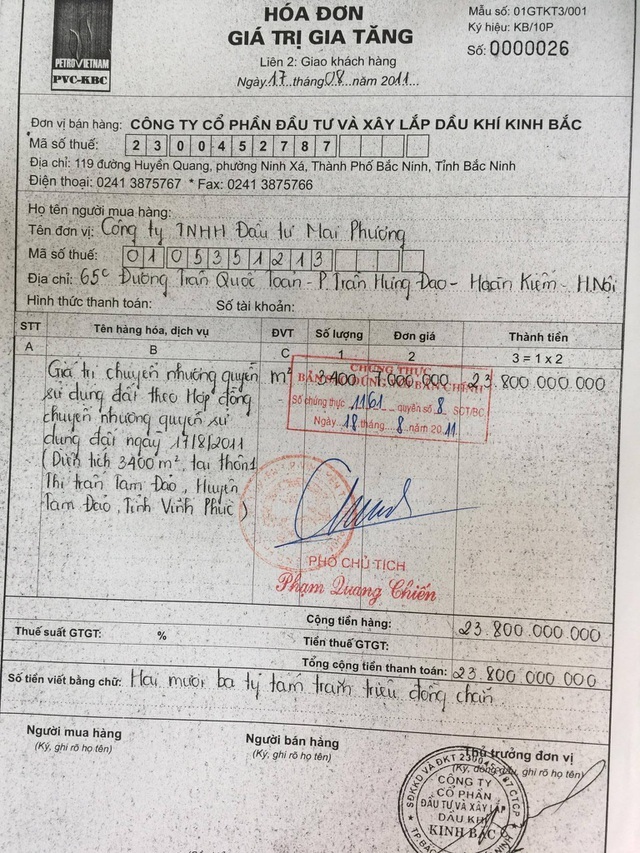 PETROVIETNAM
PVC-KBC
HÓA ĐƠN
GIÁ TRỊ GIA TĂNG
Liên 2: Giao khách hàng
Ngày 17 tháng 08 năm 2011
Mẫu số: 01GTKT3/001
Ký hiệu: KB/10P
Số: 0000026
Đơn vị bán hàng: CÔNG TY CỔ PHẦN ĐẦU TƯ VÀ XÂY LẮP DẦU KHÍ KINH BẮC
Mã số thuế: 2300452787
Địa chỉ: 119 đường Huyền Quang, phường Ninh Xá, Thành Phố Bắc Ninh, Tỉnh Bắc Ninh
Điện thoại: 0241 3875767 * Fax: 0241 3875766
Họ tên người mua hàng:
Tên đơn vị: Công ty TNHH Đầu tư Mai Phương
Mã số thuế: 0105351213
Địa chỉ: 65c Đường Trần Quốc Toản - P. Trần Hưng Đạo - Hoàn Kiếm - H.Nội
Hình thức thanh toán: Số tài khoản:
STT Tên hàng hóa, dịch vụ ĐVT Số lượng Đơn giá Thành tiền
A B C 1 2 3 = 1 x 2
Giá trị chuyển nhượng quyền m² 3.400 7.000.000 23.800.000.000
sử dụng đất theo Hợp đồng
chuyển nhượng quyền sử
dụng đất ngày 17/8/2011
(Diện tích 3400 m², tại thôn 1
Thị trấn Tam Đảo, Huyện
Tam Đảo, Tỉnh Vĩnh Phúc)
CHỨNG THỰC
BẢN SAO ĐÚNG VỚI BẢN CHÍNH
Số chứng thực 1161 quyển số 8 SCT/BC
Ngày 18 tháng 8 năm 2011
PHÓ CHỦ TỊCH
Phạm Quang Chiến
Cộng tiền hàng: 23.800.000.000
Thuế suất GTGT: % Tiền thuế GTGT:
Tổng cộng tiền thanh toán: 23.800.000.000
Số tiền viết bằng chữ: Hai mươi ba tỷ tám trăm triệu đồng chẵn
Người mua hàng
(Ký, ghi rõ họ tên)
Người bán hàng
(Ký, ghi rõ họ tên)
Thủ trưởng đơn vị
(Ký, đóng dấu, ghi rõ họ tên)
CÔNG TY
CỔ PHẦN
ĐẦU TƯ VÀ XÂY LẮP
DẦU KHÍ
KINH BẮC